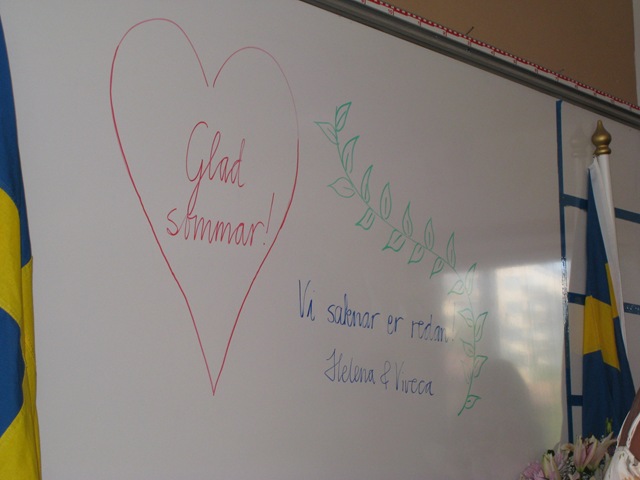 Glad
sommar!
Vi saknar er redan!
Helena & Viveca